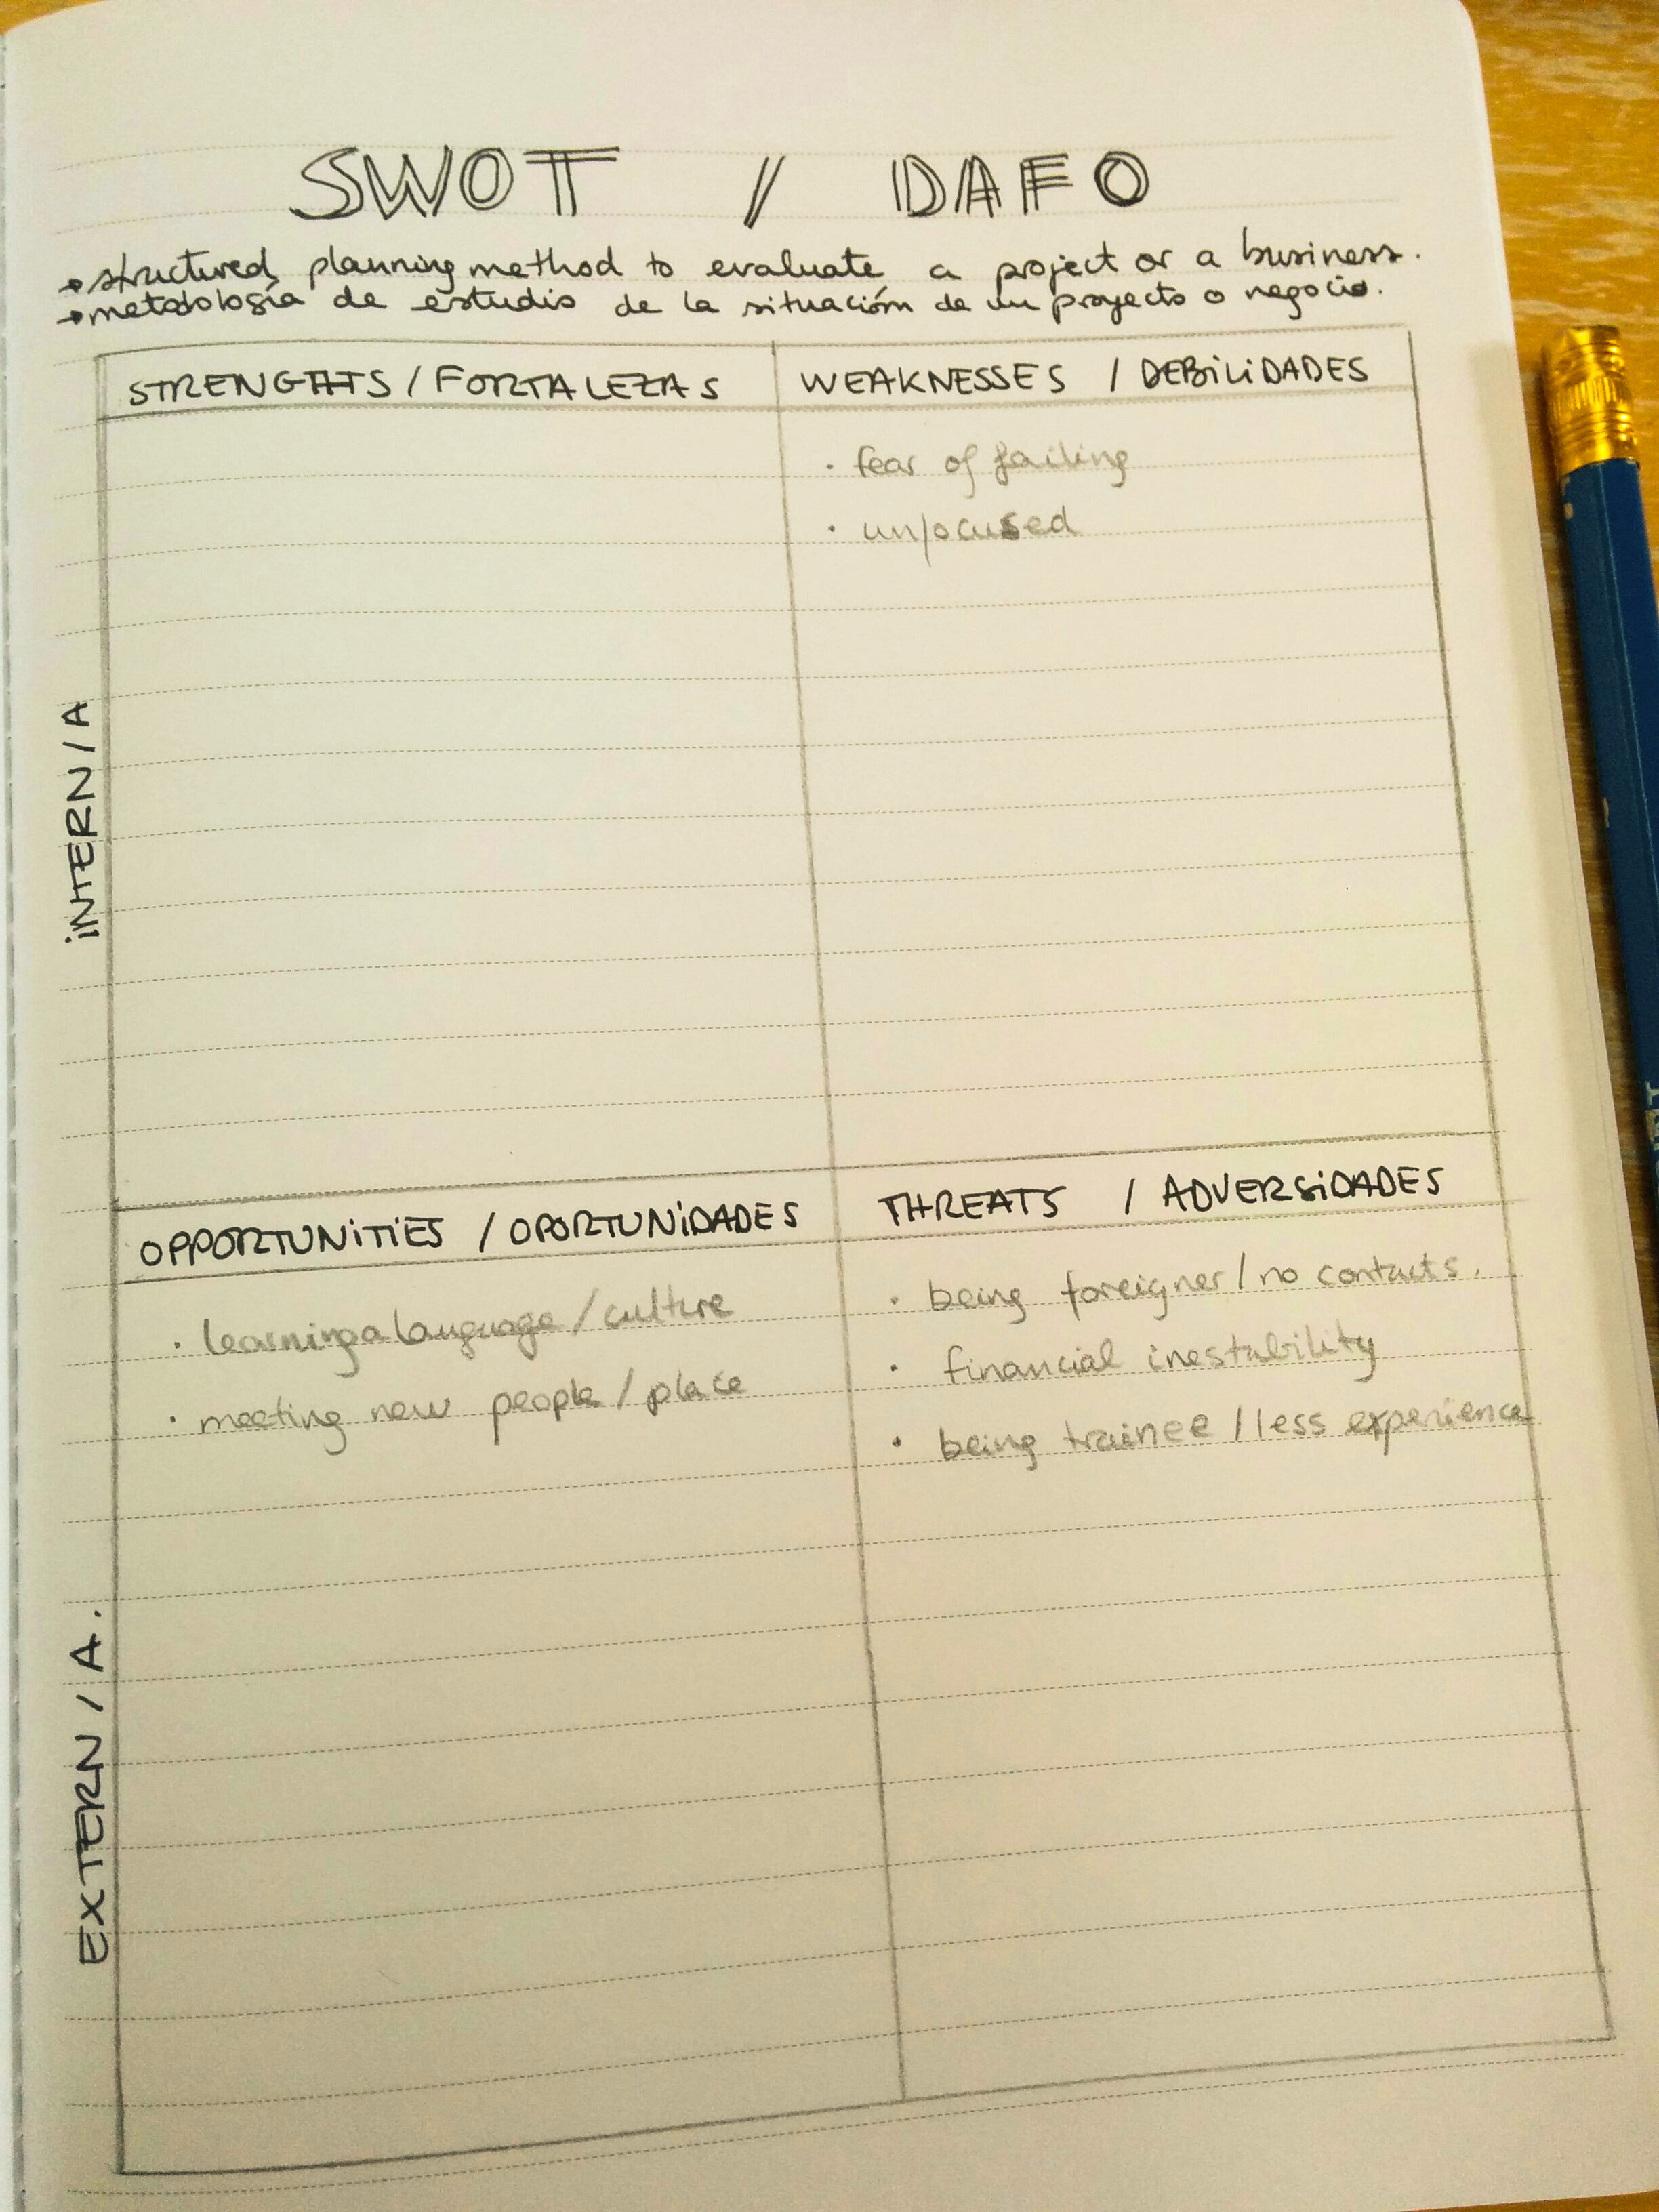 SWOT / DAFO
→ structured planning method to evaluate a project or a business.
→ metodología de estudio de la situación de un proyecto o negocio.
STRENGHTS / FORTALEZAS
WEAKNESSES / DEBiLiDADES
· fear of failing
· unfocused
iNTERN / A
OPPORTUNiTiES / OPORTUNiDADES
THREATS / ADVERSiDADES
· learning a language / culture
· meeting new people / place
· being foreigner / no contacts.
· financial inestability
· being trainee / less experience
EXTERN / A.